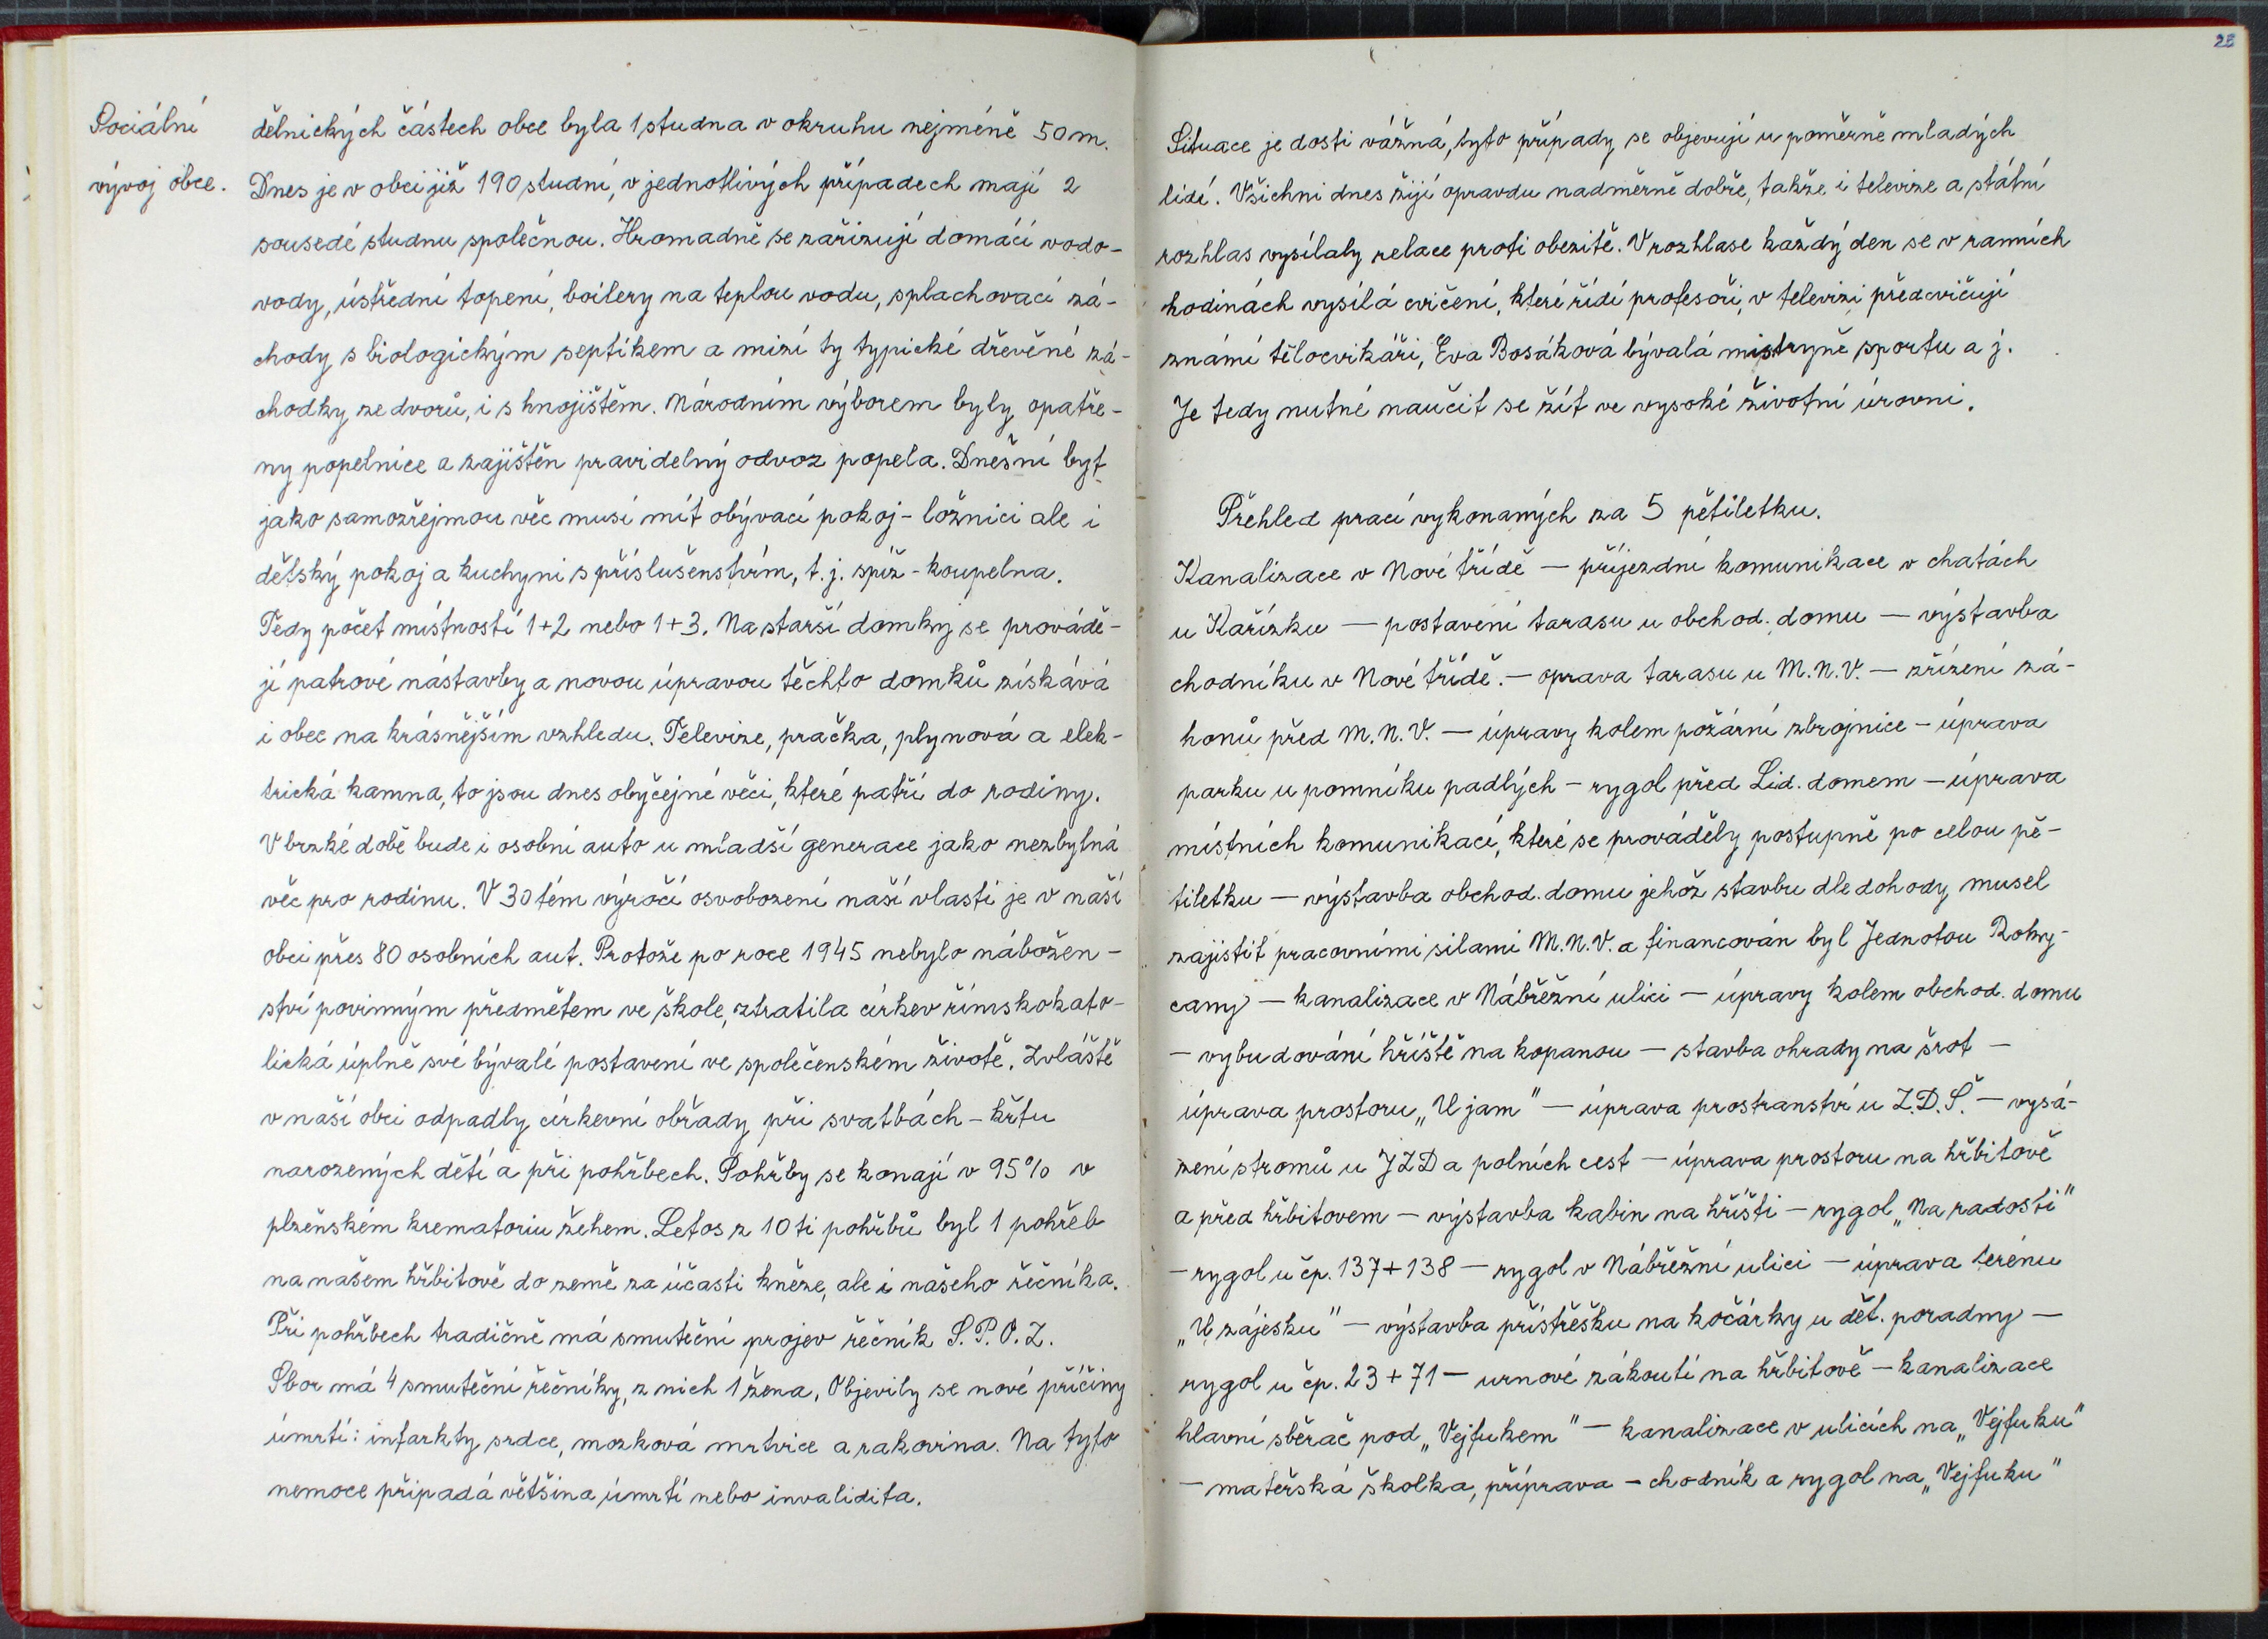 Sociální
vývoj obce.
dělnických částech obce byla 1 studna v okruhu nejméně 50 m.
Dnes je v obci již 190 studní, v jednotlivých případech mají 2
sousedé studnu společnou. Hromadně se zařizují domácí vodo-
vody, ústřední topení, boilery na teplou vodu, splachovací zá-
chody s biologickým septikem a mizí ty typické dřevěné zá-
chodky ze dvorů, i s hnojištěm. Národním výborem byly opatře-
ny popelnice a zajištěn pravidelný odvoz popela. Dnešní byt
jako samozřejmou věc musí mít obývací pokoj - ložnici ale i
dětský pokoj a kuchyni s příslušenstvím, t. j. spíž - koupelna.
Tedy počet místností 1+2 nebo 1+3. Na starší domky se provádě-
jí patrové nástavby a novou úpravou těchto domků získává
i obec na krásnějším vzhledu. Televize, pračka, plynová a elek-
trická kamna, to jsou dnes obyčejné věci, které patří do rodiny.
V brzké době bude i osobní auto u mladší generace jako nezbytná
věc pro rodinu. V 30tém výročí osvobození naší vlasti je v naší
obci přes 80 osobních aut. Protože po roce 1945 nebylo nábožen-
ství povinným předmětem ve škole, ztratila církev římskokato-
lická úplně své bývalé postavení ve společenském životě. Zvláště
v naší obci odpadly církevní obřady při svatbách - křtu
narozených dětí a při pohřbech. Pohřby se konají v 95% v
plzeňském krematoriu žehem. Letos z 10ti pohřbů byl 1 pohřeb
na našem hřbitově do země za účasti kněze, ale i našeho řečníka.
Při pohřbech tradičně má smuteční projev řečník S. P. O. Z.
Sbor má 4 smuteční řečníky, z nich 1 žena. Objevily se nové příčiny
úmrtí: infarkty srdce, mozková mrtvice a rakovina. Na tyto
nemoce připadá většina úmrtí nebo invalidita.
23
Situace je dosti vážná, tyto případy se objevují u poměrně mladých
lidí. Všichni dnes žijí opravdu nadměrně dobře, takže i televize a státní
rozhlas vysílaly relace proti obezitě. V rozhlase každý den se v ranních
hodinách vysílá cvičení, které řídí profesoři, v televizi předcvičují
známí tělocvikáři, Eva Bosáková bývalá mistryně sportu a j.
Je tedy nutné naučit se žít ve vysoké životní úrovni.
Přehled prací vykonaných za 5 pětiletku.
Kanalizace v Nové třídě — příjezdní komunikace v chatách
u Kařízku — postavení tarasu u obchod. domu — výstavba
chodníku v Nové třídě. — oprava tarasu u M. N. V. — zřízení zá-
honů před M. N. V. — úpravy kolem požární zbrojnice - úprava
parku u pomníku padlých - rygol před Lid. domem - úprava
místních komunikací, které se prováděly postupně po celou pě-
tiletku — výstavba obchod. domu jehož stavbu dle dohody musel
zajistit pracovními silami M. N. V. a financován byl Jednotou Roky-
cany — kanalizace v Nábřežní ulici — úpravy kolem obchod. domu
- vybudování hřiště na kopanou — stavba ohrady na šrot —
úprava prostoru „U jam" — úprava prostranství u Z. D. Š. — vysá-
zení stromů u JZD a polních cest — úprava prostoru na hřbitově
a před hřbitovem — výstavba kabin na hřišti — rygol „Na radosti"
- rygol u čp. 137+138 — rygol v Nábřežní ulici — úprava terénu
„U zájesku" — výstavba přístřešku na kočárky u dět. poradny —
rygol u čp. 23 + 71 — urnové zákoutí na hřbitově — kanalizace
hlavní sběrač pod „Vejfukem" — kanalizace v ulicích na „Vejfuku"
- mateřská školka, příprava - chodník a rygol na „Vejfuku"